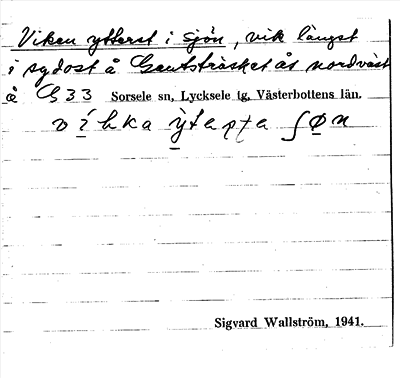 Viken ytterst i sjön, vik längst
i sydost å Gautsträsket åt nordväst
å G 33 Sorsele sn, Lycksele tg, Västerbottens län.
Sigvard Wallström, 1941.